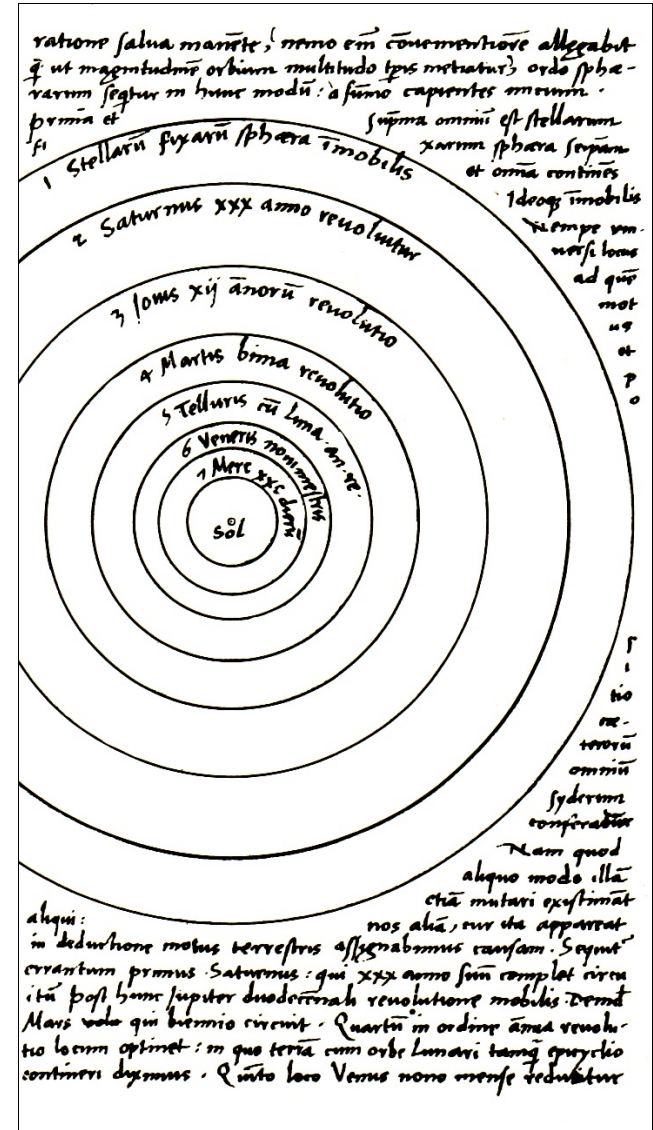 ratione salva manēte, nemo em̄ cōvenientiorē allegabit
q̄ ut magnitudinē orbium multitudo tp̄is metiatur, ordo sphæ-
rarum seq̄tur in hunc modū: a sum̄o capientes initium.
prima et
suprema omniū est stellarum
fi
xarum sphæra seipsam
et om̄ia continēs
Ideoq̄ īmobilis
Nempe uni-
versi locus
ad quē
mot
us
et
p
o
1 Stellarū fixarū sphæra īmobilis
2 Saturnus xxx anno revolvitur
3 Iovis xij ānorū revolutio
4 Martis bima revolutio
5 Telluris cū Luna an. re.
6 Veneris nonimestris
7 Merc xxc dierū
Sol
s
i
tio
cæ-
terorū
omniū
syderum
conferatur
Nam quod
aliquo modo illā
etiā mutari existimāt
aliqui:
nos aliā, cur ita appareat
in deductione motus terrestris assignabimus causam. Sequit̄
errantium primus Saturnus: qui xxx anno suū complet circu
itū post hunc Jupiter duodecēnali revolutione mobilis. Deinde
Mars qui biennio circuit. Quartū in ordine ānua revolu-
tio locum optinet: in quo terrā cum orbe Lunari tamq̄ epicyclio
contineri diximus. Quīto loco Venus nono mense reducitur